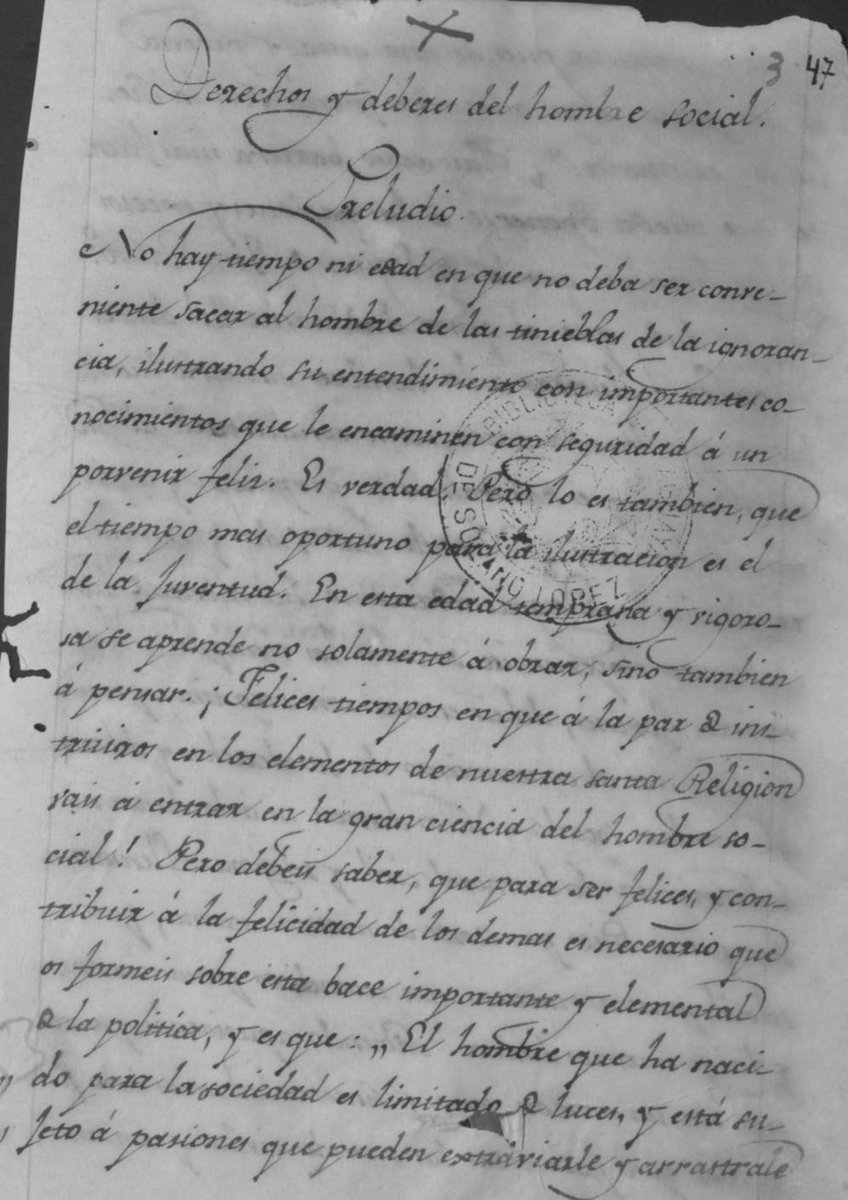 3 47
Derechos y deberes del hombre social.
Preludio.
No hay tiempo ni edad en que no deba ser conve-
niente sacar al hombre de las tinieblas de la ignoran-
cia, ilustrando su entendimiento con importantes co-
nocimientos que le encaminen con seguridad á un
porvenir feliz. Es verdad. Pero lo es tambien, que
el tiempo mas oportuno para la ilustracion es el
de la juventud. En esta edad temprana y vigoro-
sa se aprende no solamente á obrar, sino tambien
á pensar. ¡Felices tiempos en que á la par de ins-
truiros en los elementos de nuestra santa Religion
vais á entrar en la gran ciencia del hombre so-
cial! Pero debeis saber, que para ser felices, y con-
tribuir á la felicidad de los demas es necesario que
os formeis sobre esta bace importante y elemental
de la politíca, y es que: „El hombre que ha naci-
„ do para la sociedad es limitado de luces, y está su-
„ jeto á pasiones que pueden extraviarle y arrastrale
BIBLIOTECA
DE SOLANO LOPEZ